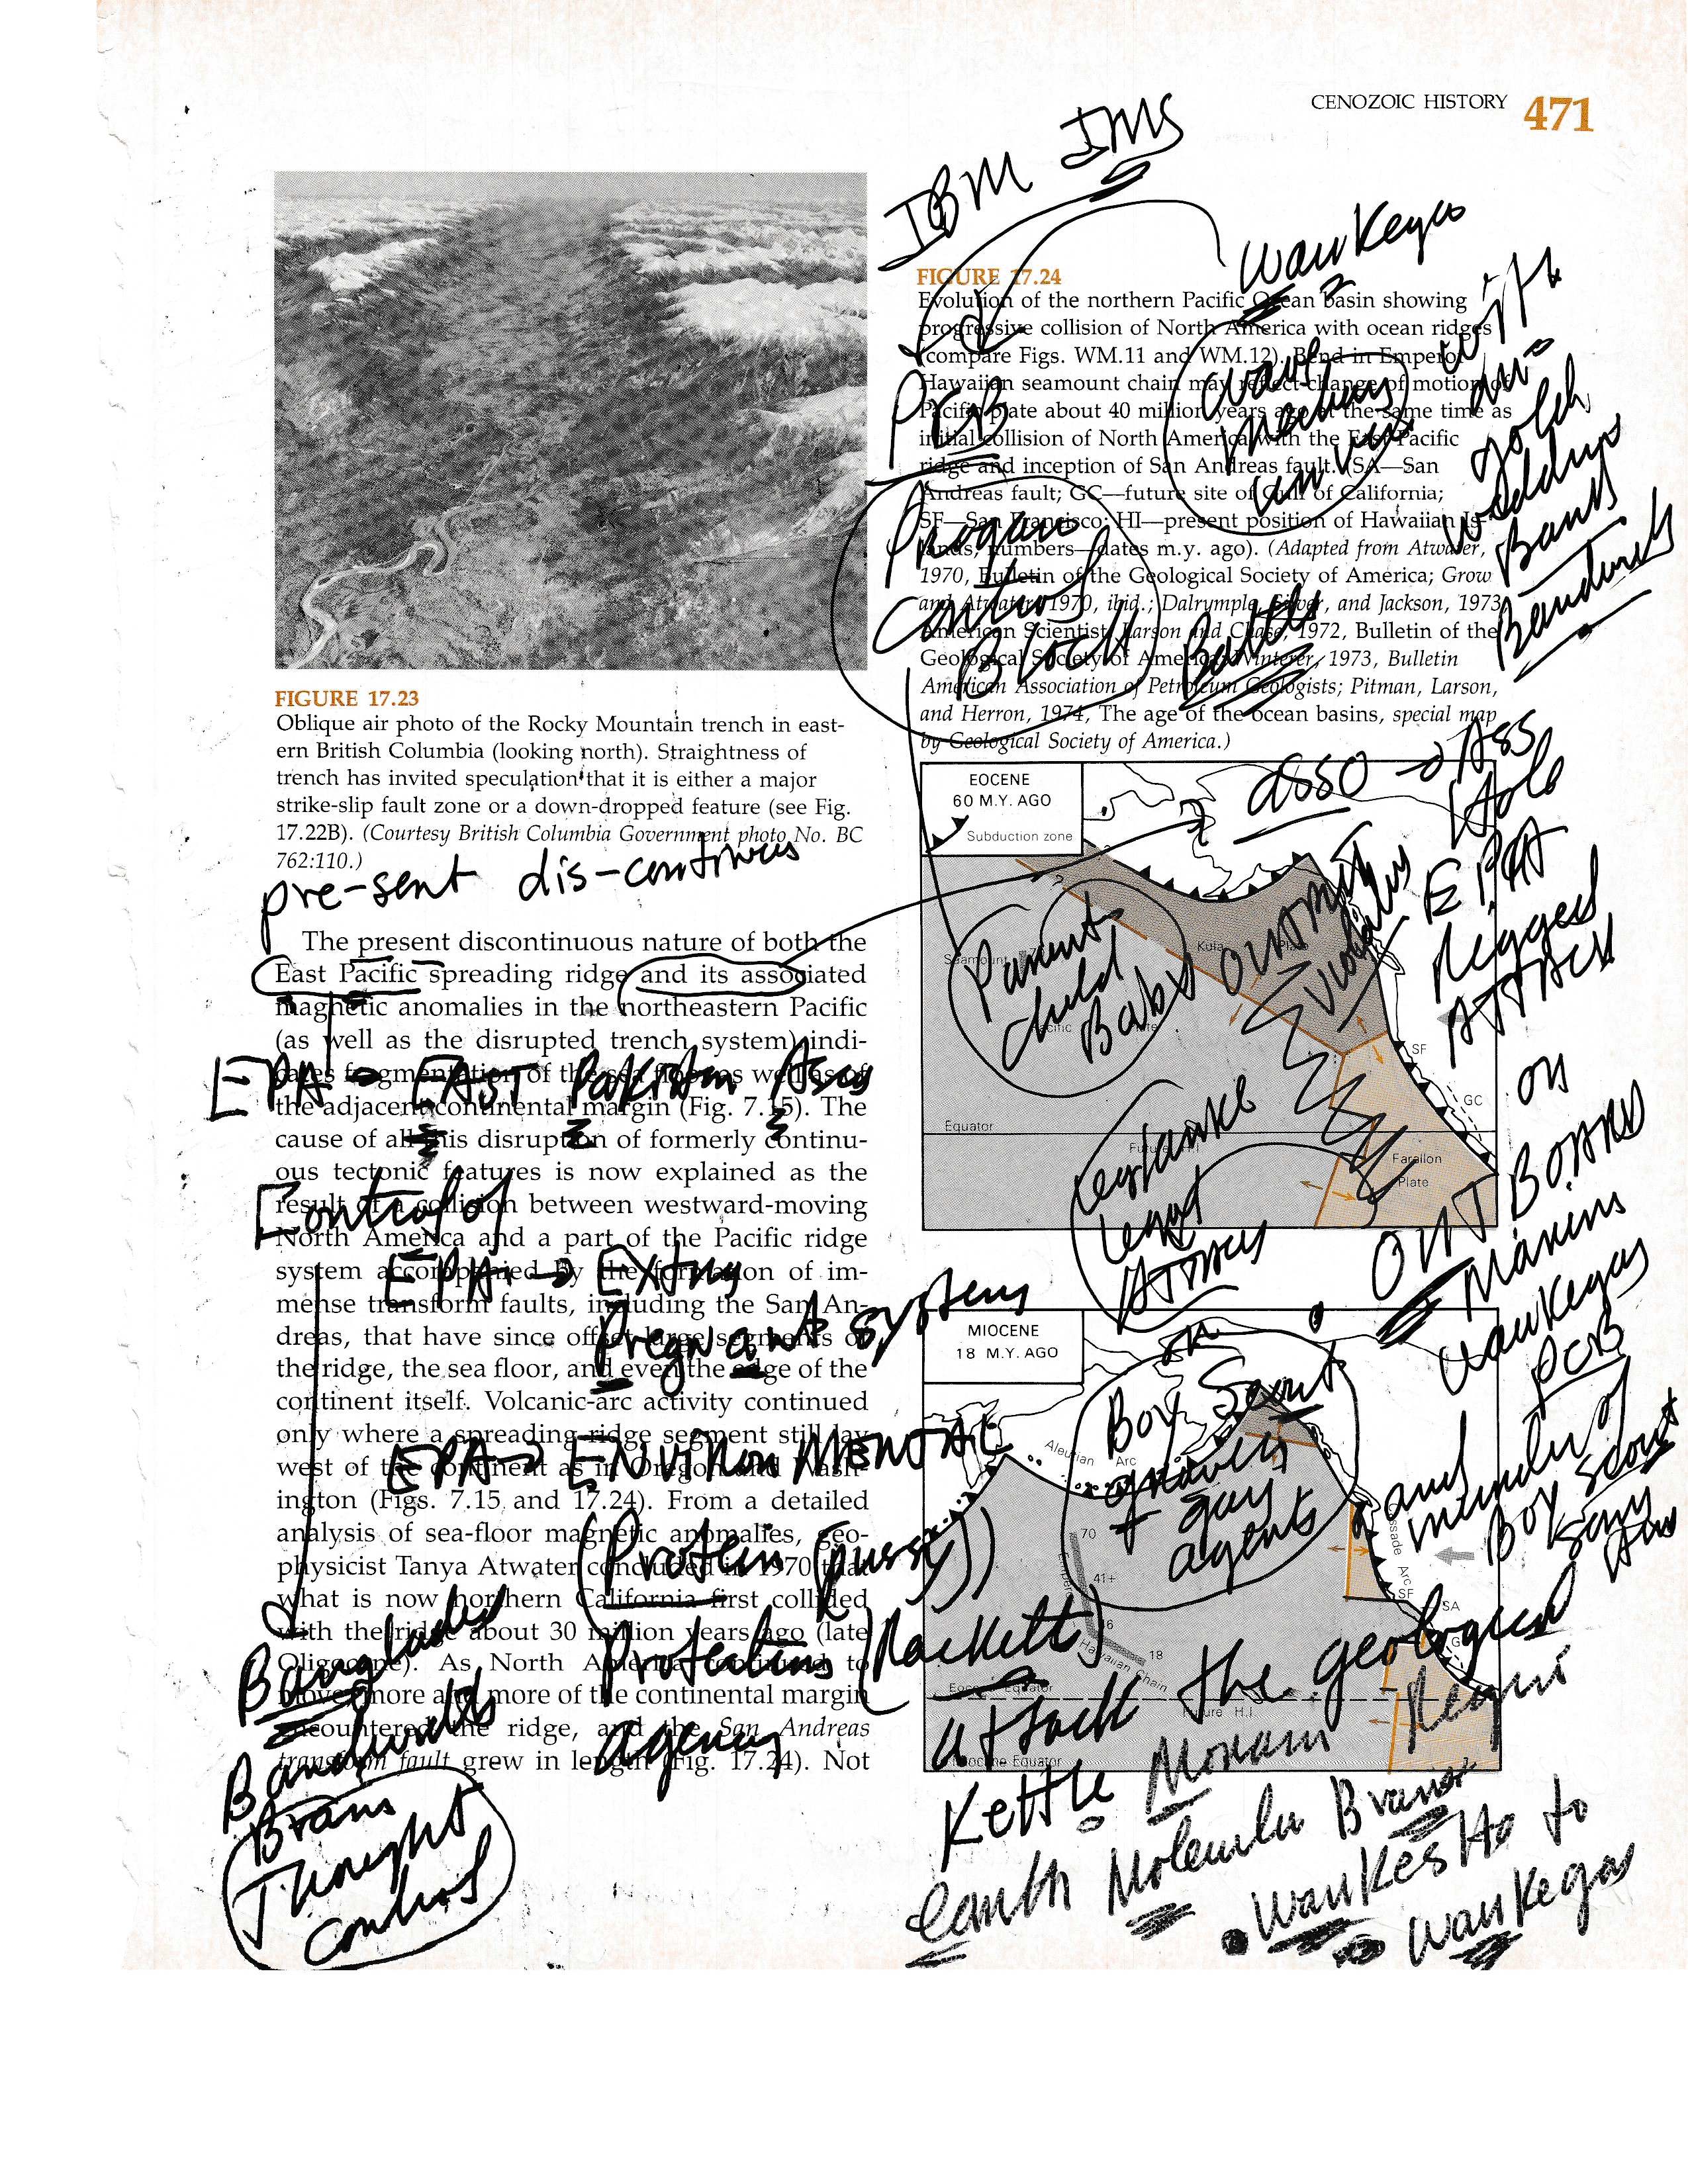 CENOZOIC HISTORY 471
IBM IMS
Waukegan
with
PCB
Program
Control
Block
Battles
gold
Banks
FIGURE 17.24
Evolution of the northern Pacific Ocean basin showing
progressive collision of North America with ocean ridges
(compare Figs. WM.11 and WM.12). Bend in Emperor
Hawaiian seamount chain may reflect change of motion of
Pacific plate about 40 million years ago at the same time as
initial collision of North America with the East Pacific
ridge and inception of San Andreas fault. (SA—San
Andreas fault; GC—future site of Gulf of California;
SF—San Francisco; HI—present position of Hawaiian Is-
lands; numbers—dates m.y. ago). (Adapted from Atwater,
1970, Bulletin of the Geological Society of America; Grow
and Atwater, 1970, ibid.; Dalrymple, Silver, and Jackson, 1973,
American Scientist; Larson and Chase, 1972, Bulletin of the
Geological Society of America; Winterer, 1973, Bulletin
American Association of Petroleum Geologists; Pitman, Larson,
and Herron, 1974, The age of the ocean basins, special map
by Geological Society of America.)
FIGURE 17.23
Oblique air photo of the Rocky Mountain trench in east-
ern British Columbia (looking north). Straightness of
trench has invited speculation that it is either a major
strike-slip fault zone or a down-dropped feature (see Fig.
17.22B). (Courtesy British Columbia Government photo No. BC
762:110.)
pre-sent dis-continues
The present discontinuous nature of both the
East Pacific spreading ridge and its associated
magnetic anomalies in the northeastern Pacific
(as well as the disrupted trench system) indi-
cates fragmentation of the sea floor as well as of
the adjacent continental margin (Fig. 7.15). The
cause of all this disruption of formerly continu-
ous tectonic features is now explained as the
result of a collision between westward-moving
North America and a part of the Pacific ridge
system accompanied by the formation of im-
mense transform faults, including the San An-
dreas, that have since offset large segments of
the ridge, the sea floor, and even the edge of the
continent itself. Volcanic-arc activity continued
only where a spreading-ridge segment still lay
west of the continent as in Oregon and Wash-
ington (Figs. 7.15 and 17.24). From a detailed
analysis of sea-floor magnetic anomalies, geo-
physicist Tanya Atwater concluded in 1970 that
what is now northern California first collided
with the ridge about 30 million years ago (late
Oligocene). As North America continued to
move, more and more of the continental margin
encountered the ridge, and the San Andreas
transform fault grew in length (Fig. 17.24). Not
EPA → EAST Pakistan
Control of
EPA →
Pregnant system
EPA → ENVIRONMENTAL
(Protein
Protections
agency
Brans
Thought
control
EOCENE
60 M.Y. AGO
Subduction zone
asso → Ass
Hole
EPA
ATTACK
on
Parent
child
Baby
Seamount
Kula Plate
Pacific Plate
SF
GC
Equator
Future H.I.
Farallon
Plate
OUT BOARD
Waukegan
PCB
and
member of
Boy Scout
MIOCENE
18 M.Y. AGO
on
Boy Scout
gay
agents
Aleutian Arc
Cascade Arc
70
Emperor
41+
18
Hawaiian Chain
SF
SA
Eocene Equator
Future H.I.
Miocene Equator
(Hackett)
attack the geological
Kettle
earth Molecular
Waukesha to
Waukegan